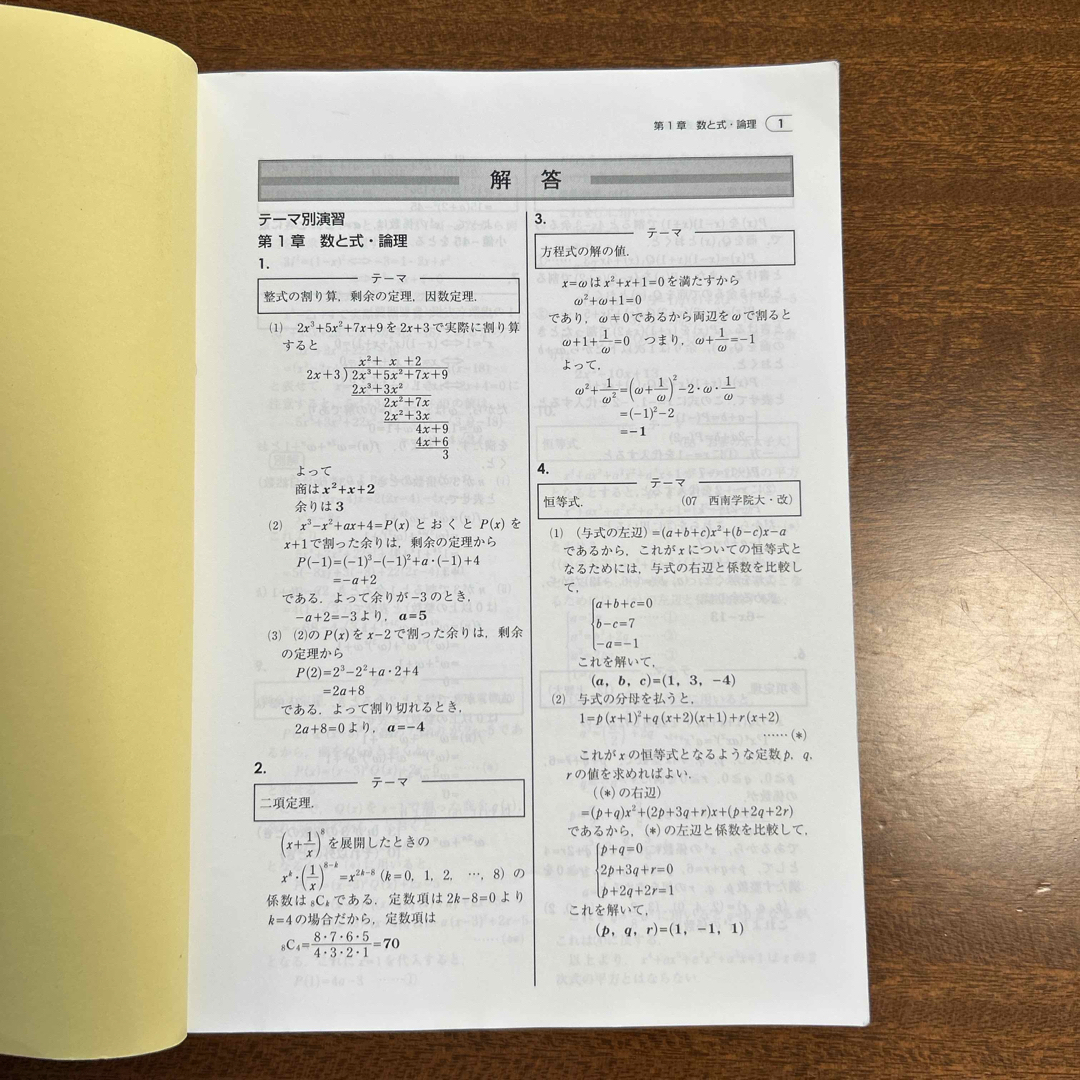 第1章 数と式・論理 1
解 答
テーマ別演習
第1章 数と式・論理
1.
テーマ
整式の割り算，剰余の定理，因数定理.
(1) 2x³+5x²+7x+9を2x+3で実際に割り算
すると
x²+ x +2
2x+3)2x³+5x²+7x+9
2x³+3x²
2x²+7x
2x²+3x
4x+9
4x+6
3
よって
商はx²+x+2
余りは3
(2) x³−x²+ax+4=P(x)とおくとP(x)を
x+1で割った余りは，剰余の定理から
P(−1)=(−1)³−(−1)²+a・(−1)+4
=−a+2
である．よって余りが−3のとき，
−a+2=−3より，a=5
(3) (2)のP(x)をx−2で割った余りは，剰余
の定理から
P(2)=2³−2²+a・2+4
=2a+8
である．よって割り切れるとき，
2a+8=0より，a=−4
2.
テーマ
二項定理.
(x+1/x)⁸を展開したときの
xᵏ・(1/x)⁸⁻ᵏ=x²ᵏ⁻⁸(k=0，1，2，…，8)の
係数は₈Cₖである．定数項は2k−8=0より
k=4の場合だから，定数項は
₈C₄=8・7・6・5/4・3・2・1=70
3.
テーマ
方程式の解の値.
x=ωはx²+x+1=0を満たすから
ω²+ω+1=0
であり，ω≠0であるから両辺をωで割ると
ω+1+1/ω=0 つまり，ω+1/ω=−1
よって，
ω²+1/ω²=(ω+1/ω)²−2・ω・1/ω
=(−1)²−2
=−1
4.
テーマ
恒等式. (07 西南学院大・改)
(1) (与式の左辺)=(a+b+c)x²+(b−c)x−a
であるから，これがxについての恒等式と
なるためには，与式の右辺と係数を比較し
て，
a+b+c=0
b−c=7
−a=−1
これを解いて，
(a，b，c)=(1，3，−4)
(2) 与式の分母を払うと，
1=p(x+1)²+q(x+2)(x+1)+r(x+2)
……(*)
これがxの恒等式となるような定数p，q，
rの値を求めればよい．
((*)の右辺)
=(p+q)x²+(2p+3q+r)x+(p+2q+2r)
であるから，(*)の左辺と係数を比較して，
p+q=0
2p+3q+r=0
p+2q+2r=1
これを解いて，
(p，q，r)=(1，−1，1)